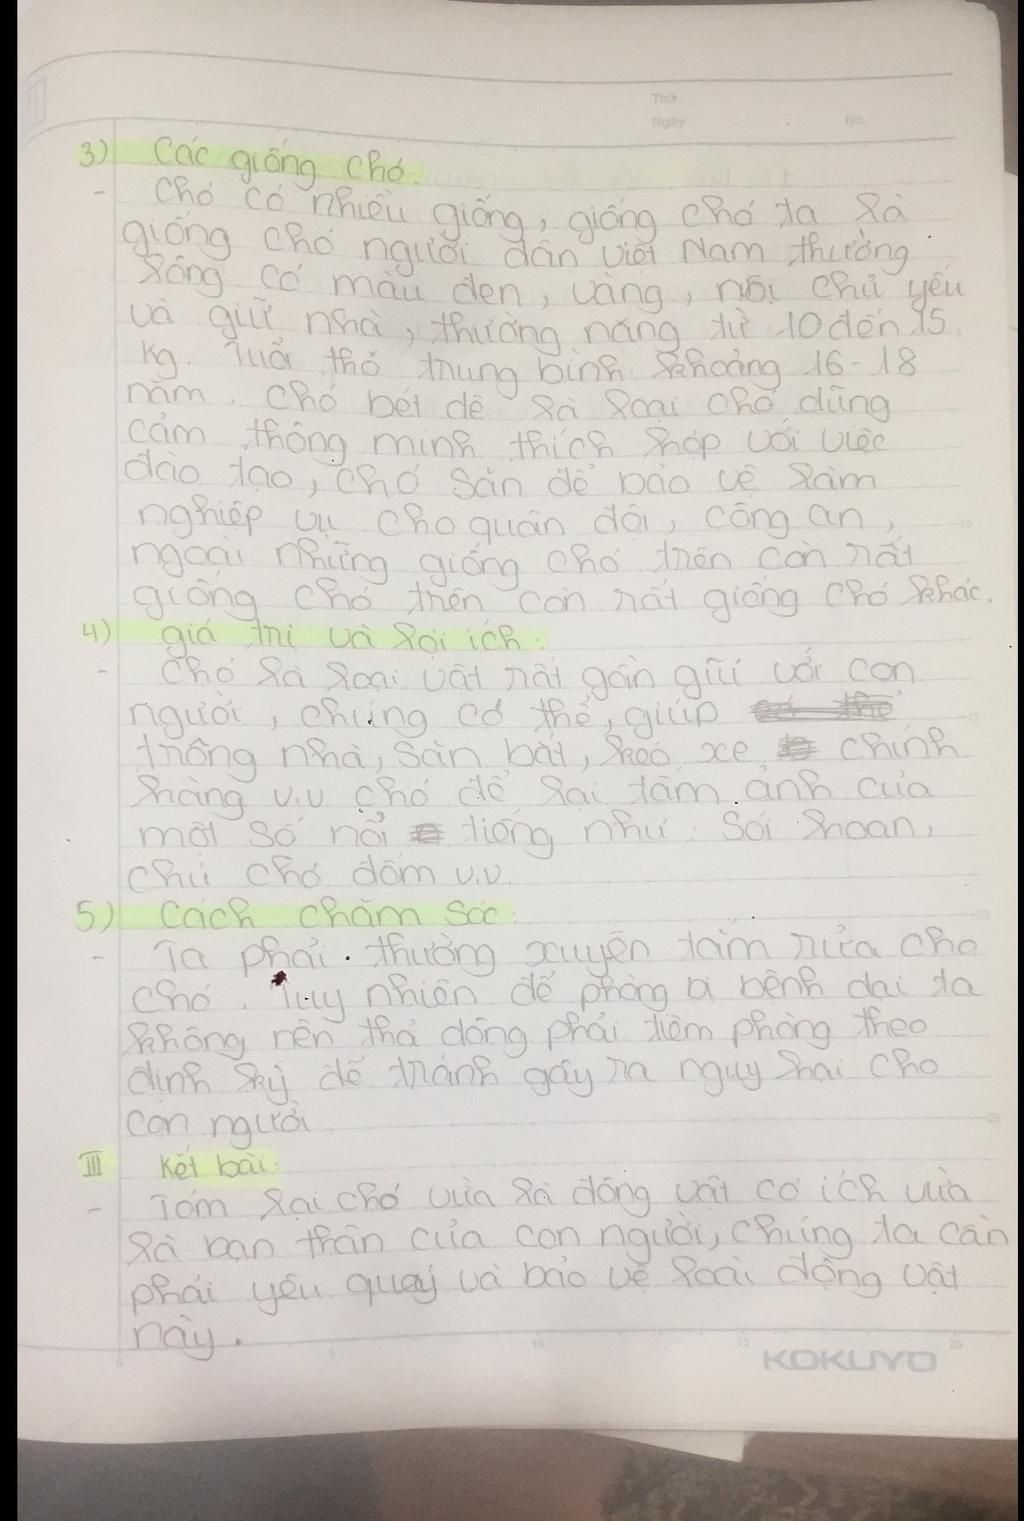 Thứ
Ngày . . No.
3) Các giống chó:
- Chó có nhiều giống, giống chó ta là
giống chó người dân Việt Nam thường
sống có màu đen, vàng, nôi chủ yếu
và giữ nhà, thường nặng từ 10 đến 15
kg. Tuổi thọ trung bình khoảng 16-18
năm. Chó bét dê là loại chó dũng
cảm thông minh thích hợp với việc
đào tạo, chó săn để bảo vệ làm
nghiệp vụ cho quân đội, công an,
ngoài những giống chó trên còn rất
giống chó trên còn rất giống chó khác.
4) giá trị và lợi ích:
- Chó là loại vật rất gần gũi với con
người, chúng có thể, giúp
trông nhà, săn bắt, kéo xe chính
hàng v.v chó để lại tấm ảnh của
một số nổi tiếng như: Sói hoan,
chú chó đốm v.v.
5) Cách chăm sóc:
- Ta phải. thường xuyên tắm rửa cho
chó. Tuy nhiên để phòng bị bệnh dại ta
không nên thả dông phải tiêm phòng theo
định kỳ để tránh gây ra nguy hại cho
con người
III Kết bài:
- Tóm lại chó vừa là động vật có ích vừa
là bạn thân của con người, chúng ta cần
phải yêu quý và bảo vệ loài động vật
này.
0 5 10 15 20
KOKUYO